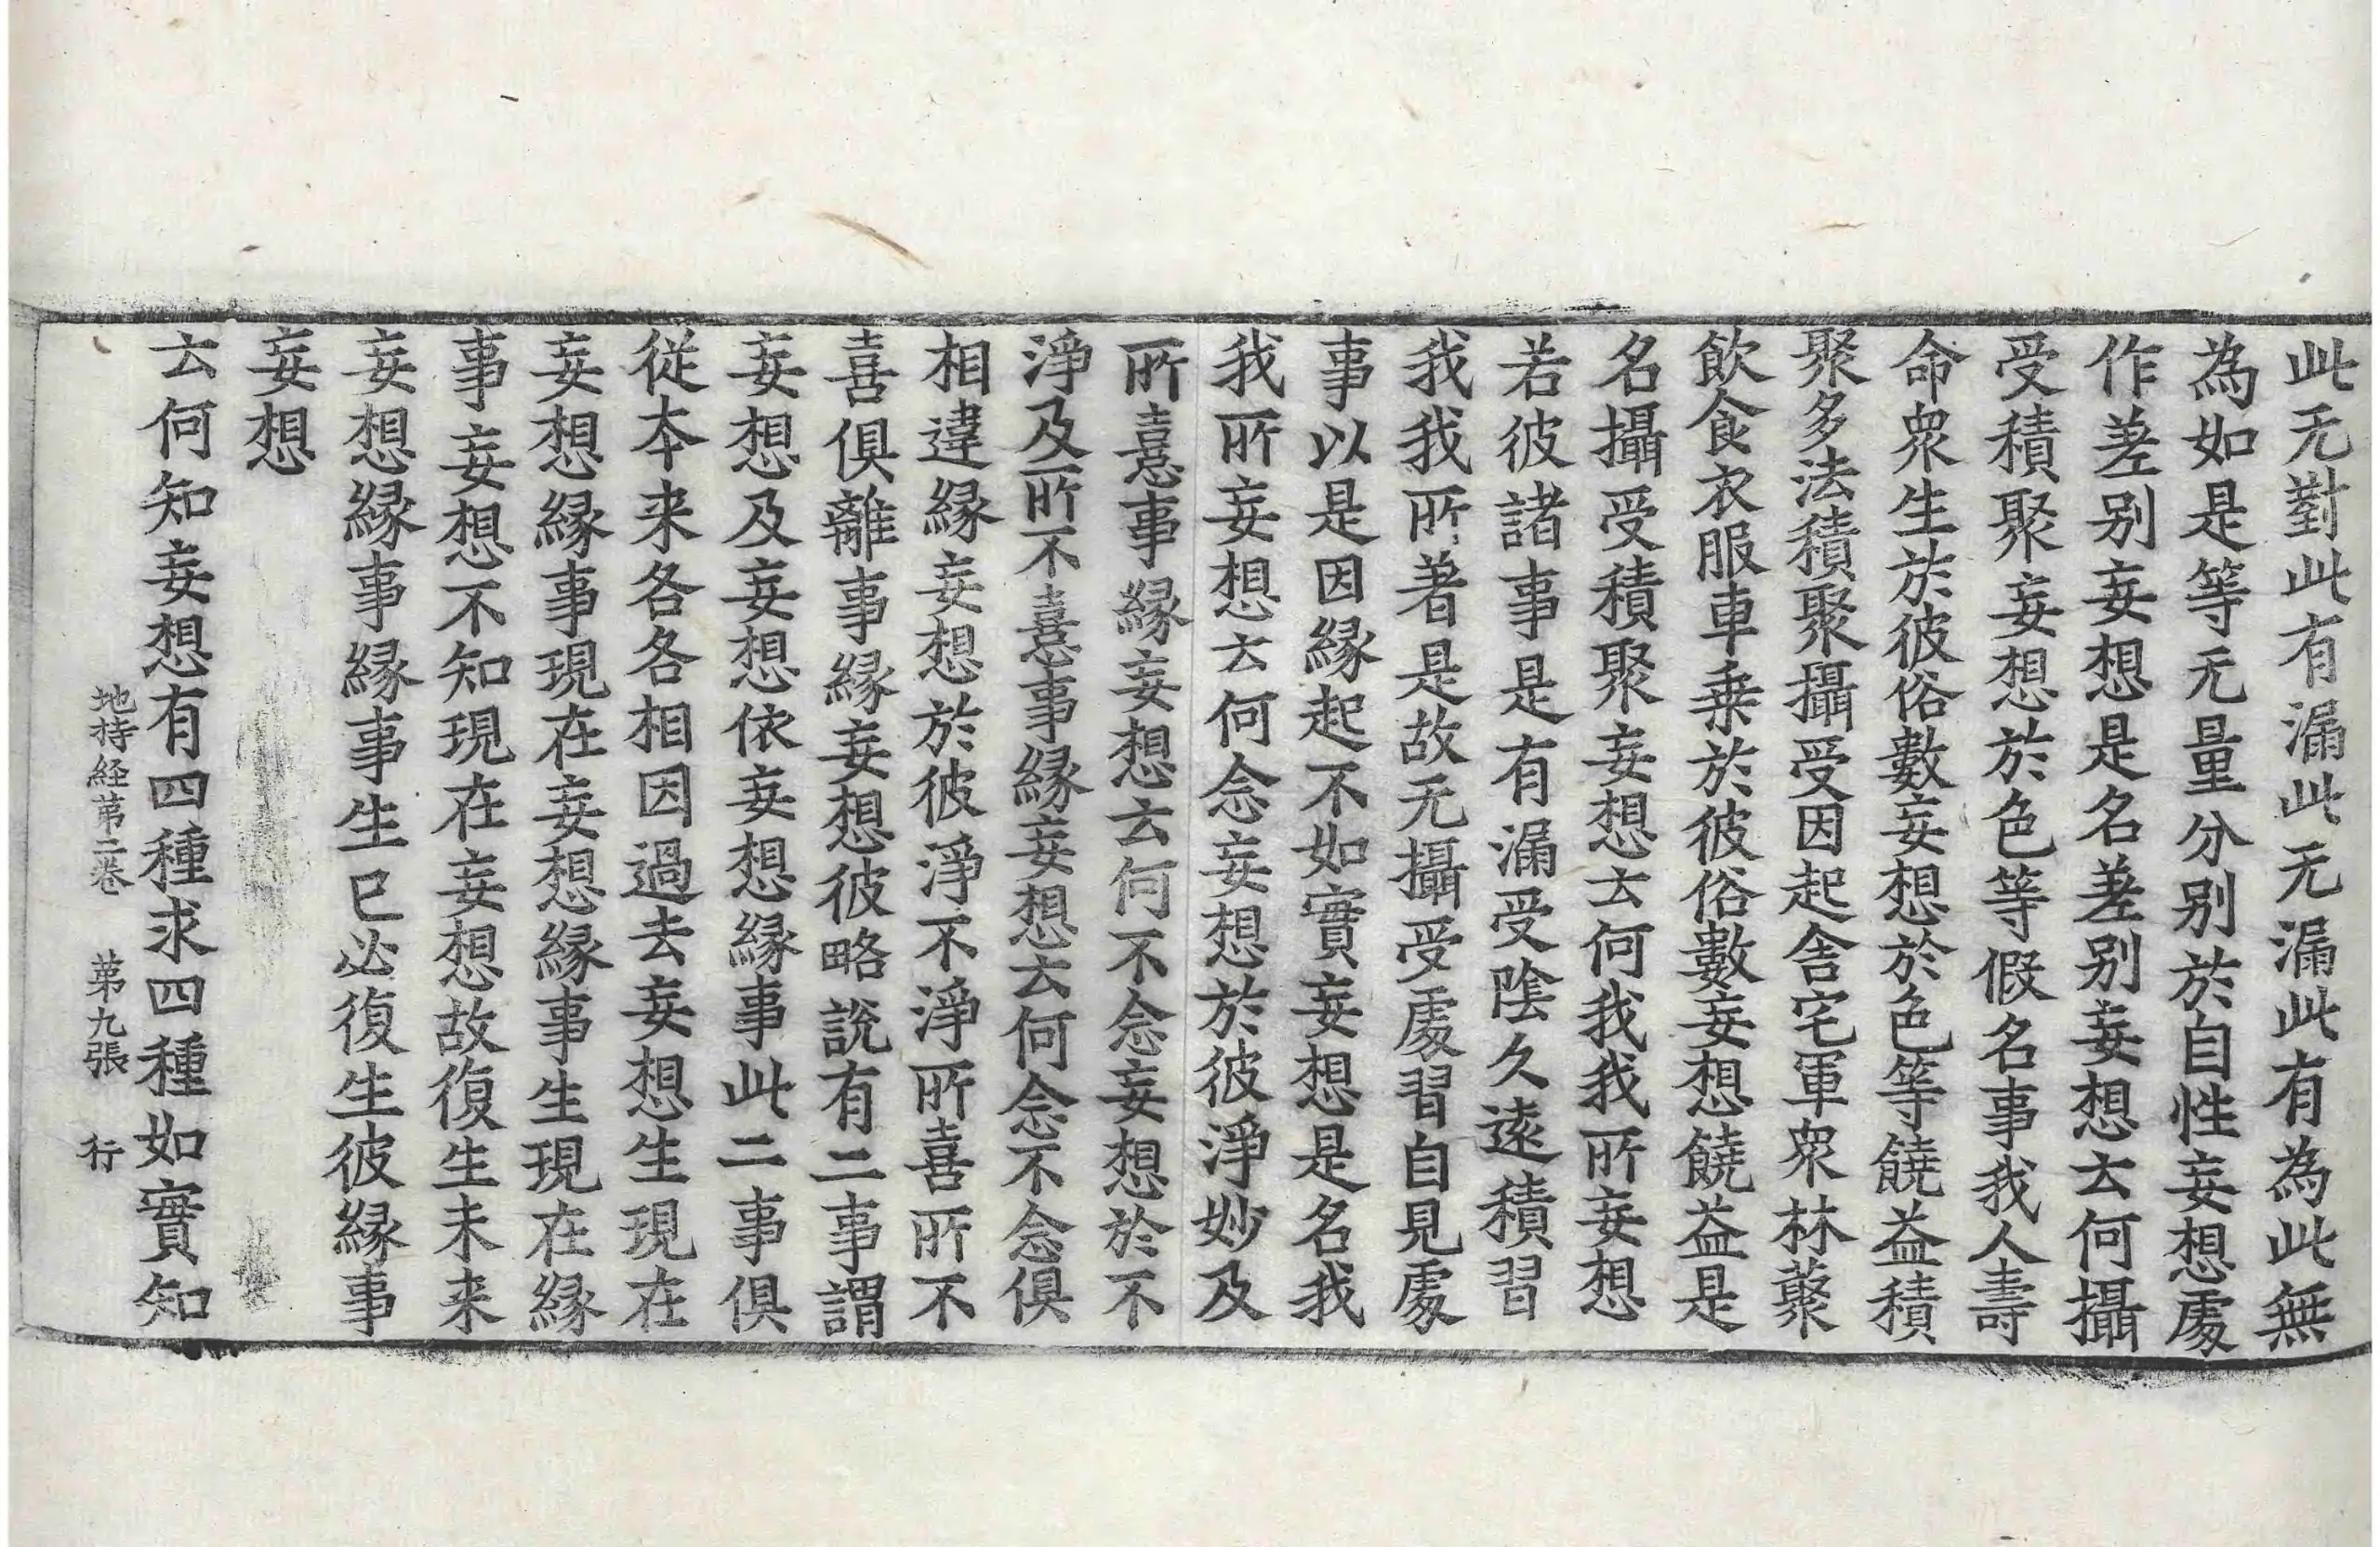 此无對此有漏此无漏此有為此無
為如是等无量分别於自性妄想處
作差别妄想是名差别妄想云何攝
受積聚妄想於色等假名事我人壽
命衆生於彼俗數妄想於色等饒益積
聚多法積聚攝受因起舎宅軍衆林藂
飲食衣服車乗於彼俗數妄想饒益是
名攝受積聚妄想云何我我所妄想
若彼諸事是有漏受陰久遠積習
我我所著是故无攝受處習自見處
事以是因縁起不如實妄想是名我
我所妄想云何念妄想於彼淨妙及
所憙事縁妄想云何不念妄想於不
淨及所不憙事縁妄想云何念不念俱
相違縁妄想於彼淨不淨所喜所不
喜俱離事縁妄想彼略說有二事謂
妄想及妄想依妄想縁事此二事俱
従本来各各相因過去妄想生現在
妄想縁事現在妄想縁事生現在縁
事妄想不知現在妄想故復生未来
妄想縁事縁事生已必復生彼縁事
妄想
云何知妄想有四種求四種如實知
地持経苐二卷 苐九張 行